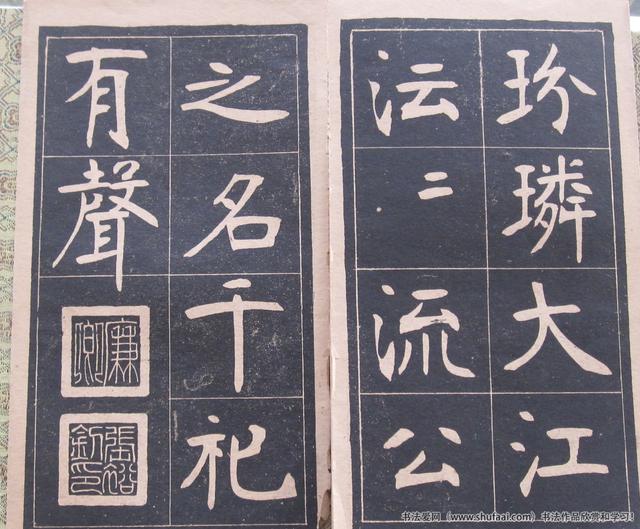 玢璘大江
沄二流公
之名千祀
有聲
廉卿
張裕釗印
书法爱网（www.shufaai.com）书法作品欣赏和学习!